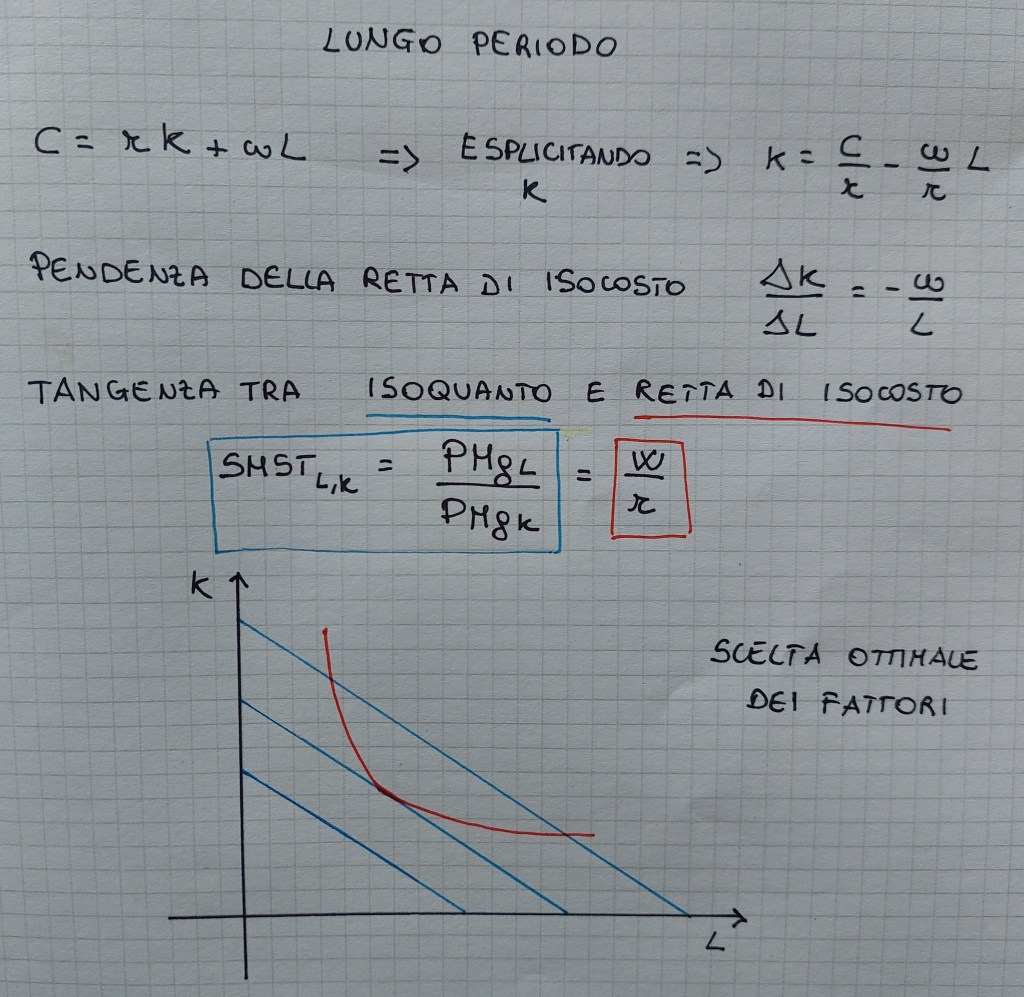 LUNGO PERIODO
C = rK + wL => ESPLICITANDO K => K = C/r - w/r L
PENDENZA DELLA RETTA DI ISOCOSTO ΔK/ΔL = - w/L
TANGENZA TRA ISOQUANTO E RETTA DI ISOCOSTO
SMST L,K = PMgL/PMgK = w/r
K
SCELTA OTTIMALE
DEI FATTORI
L